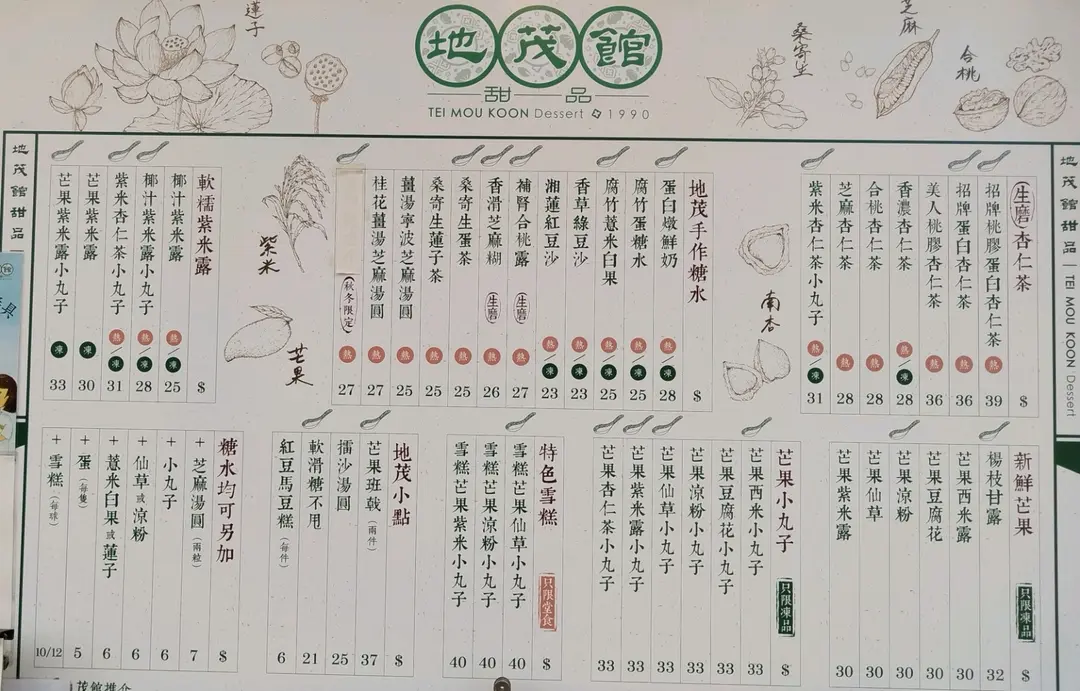 地茂館
甜品
TEI MOU KOON Dessert 1990
蓮子
桑寄生
芝麻
合桃
地茂館甜品 TEI MOU KOON Dessert
(生磨)杏仁茶 $
招牌桃膠蛋白杏仁茶 熱 39
招牌蛋白杏仁茶 熱 36
美人桃膠杏仁茶 熱 36
香濃杏仁茶 熱/凍 28
合桃杏仁茶 熱 28
芝麻杏仁茶 熱 28
紫米杏仁茶小丸子 熱/凍 31
南杏
地茂手作糖水 $
蛋白燉鮮奶 熱/凍 28
腐竹蛋糖水 熱/凍 25
腐竹薏米白果 熱/凍 25
香草綠豆沙 熱/凍 23
湘蓮紅豆沙 熱/凍 23
補腎合桃露(生磨) 熱 27
香滑芝麻糊(生磨) 熱 26
桑寄生蛋茶 熱 25
桑寄生蓮子茶 熱 25
薑湯寧波芝麻湯圓 熱 25
桂花薑湯芝麻湯圓 熱 27
(秋冬限定) 熱 27
紫米
芒果
軟糯紫米露 $
椰汁紫米露 熱/凍 25
椰汁紫米露小丸子 熱/凍 28
紫米杏仁茶小丸子 熱/凍 31
芒果紫米露 凍 30
芒果紫米露小丸子 凍 33
地茂館甜品
新鮮芒果 只限凍品 $
楊枝甘露 32
芒果西米露 30
芒果豆腐花 30
芒果涼粉 30
芒果仙草 30
芒果紫米露 30
芒果小丸子 只限凍品 $
芒果西米小丸子 33
芒果豆腐花小丸子 33
芒果涼粉小丸子 33
芒果仙草小丸子 33
芒果紫米露小丸子 33
芒果杏仁茶小丸子 33
特色雪糕 只限堂食 $
雪糕芒果仙草小丸子 40
雪糕芒果涼粉小丸子 40
雪糕芒果紫米小丸子 40
地茂小點 $
芒果班戟(兩件) 37
擂沙湯圓 25
軟滑糖不甩 21
紅豆馬豆糕(每件) 6
糖水均可另加 $
+芝麻湯圓(兩粒) 7
+小丸子 6
+仙草或涼粉 6
+薏米白果或蓮子 6
+蛋(每隻) 5
+雪糕(每球) 10/12
茂館推介